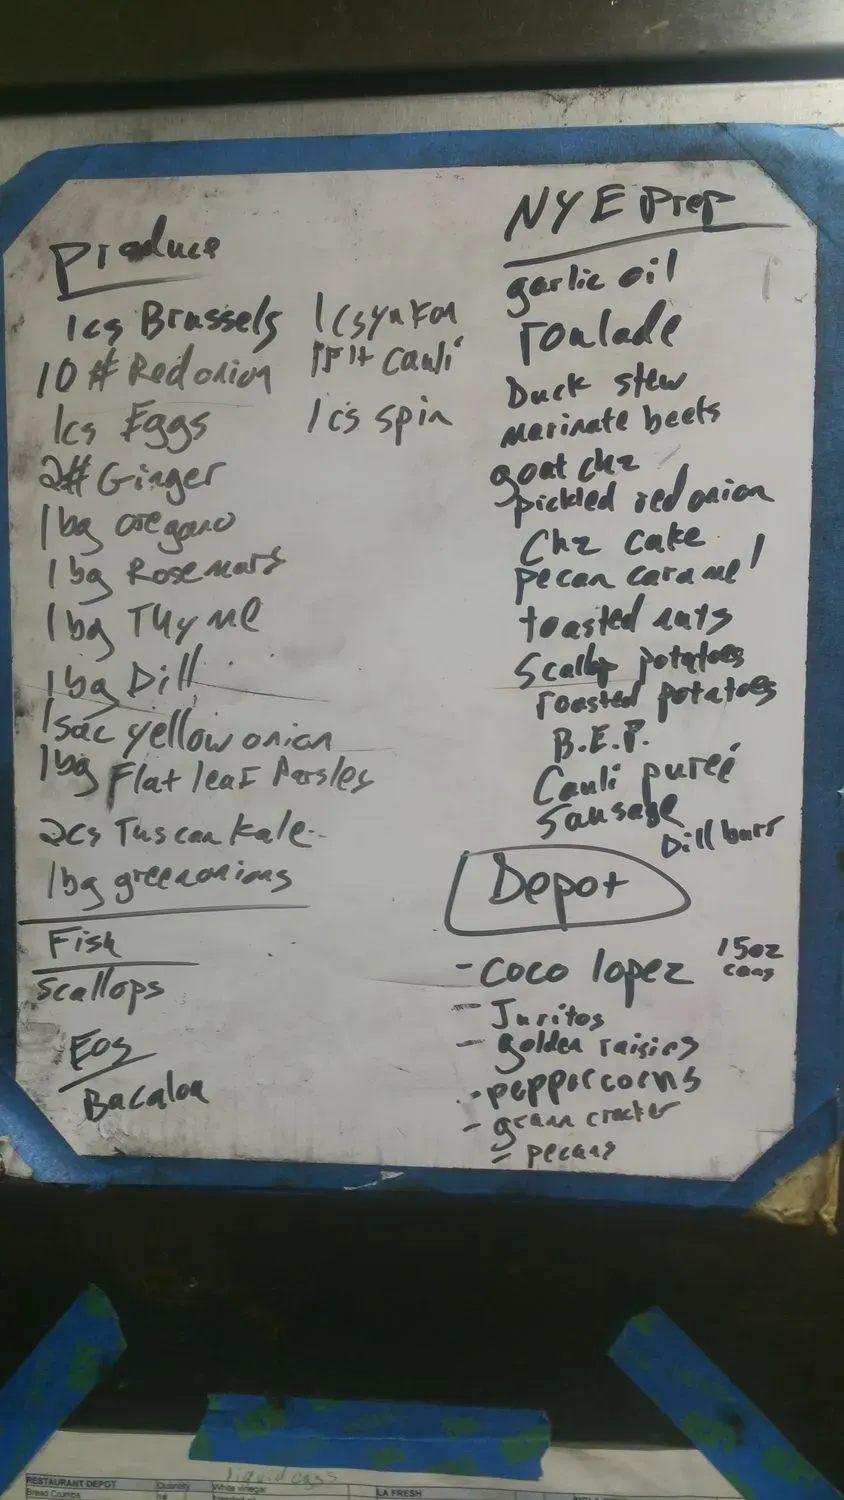 Produce
1cs Brussels
10 # Red onion
1cs Eggs
2# Ginger
1bg oregano
1bg Rosemary
1bg Thyme
1bg Dill
1sac yellow onion
1bg Flat leaf Parsley
2cs Tuscan Kale
1bg greenonions
1cs yukon
cauli
1cs spin
Fish
Scallops
Eos
Bacaloa
NYE Prep
garlic oil
roulade
Duck stew
marinate beets
goat chz
pickled red onion
Chz cake
pecan caramel
toasted nuts
Scallop potatoes
roasted potatoes
B.E.P.
Cauli pureé
Sausage
Dill burr
Depot
- Coco lopez 15oz cans
- Juritos
- golden raisins
- peppercorns
- gram cracker
- pecans
liquid eggs
RESTAURANT DEPOT Quantity White vinegar LA FRESH
Bread Crumbs